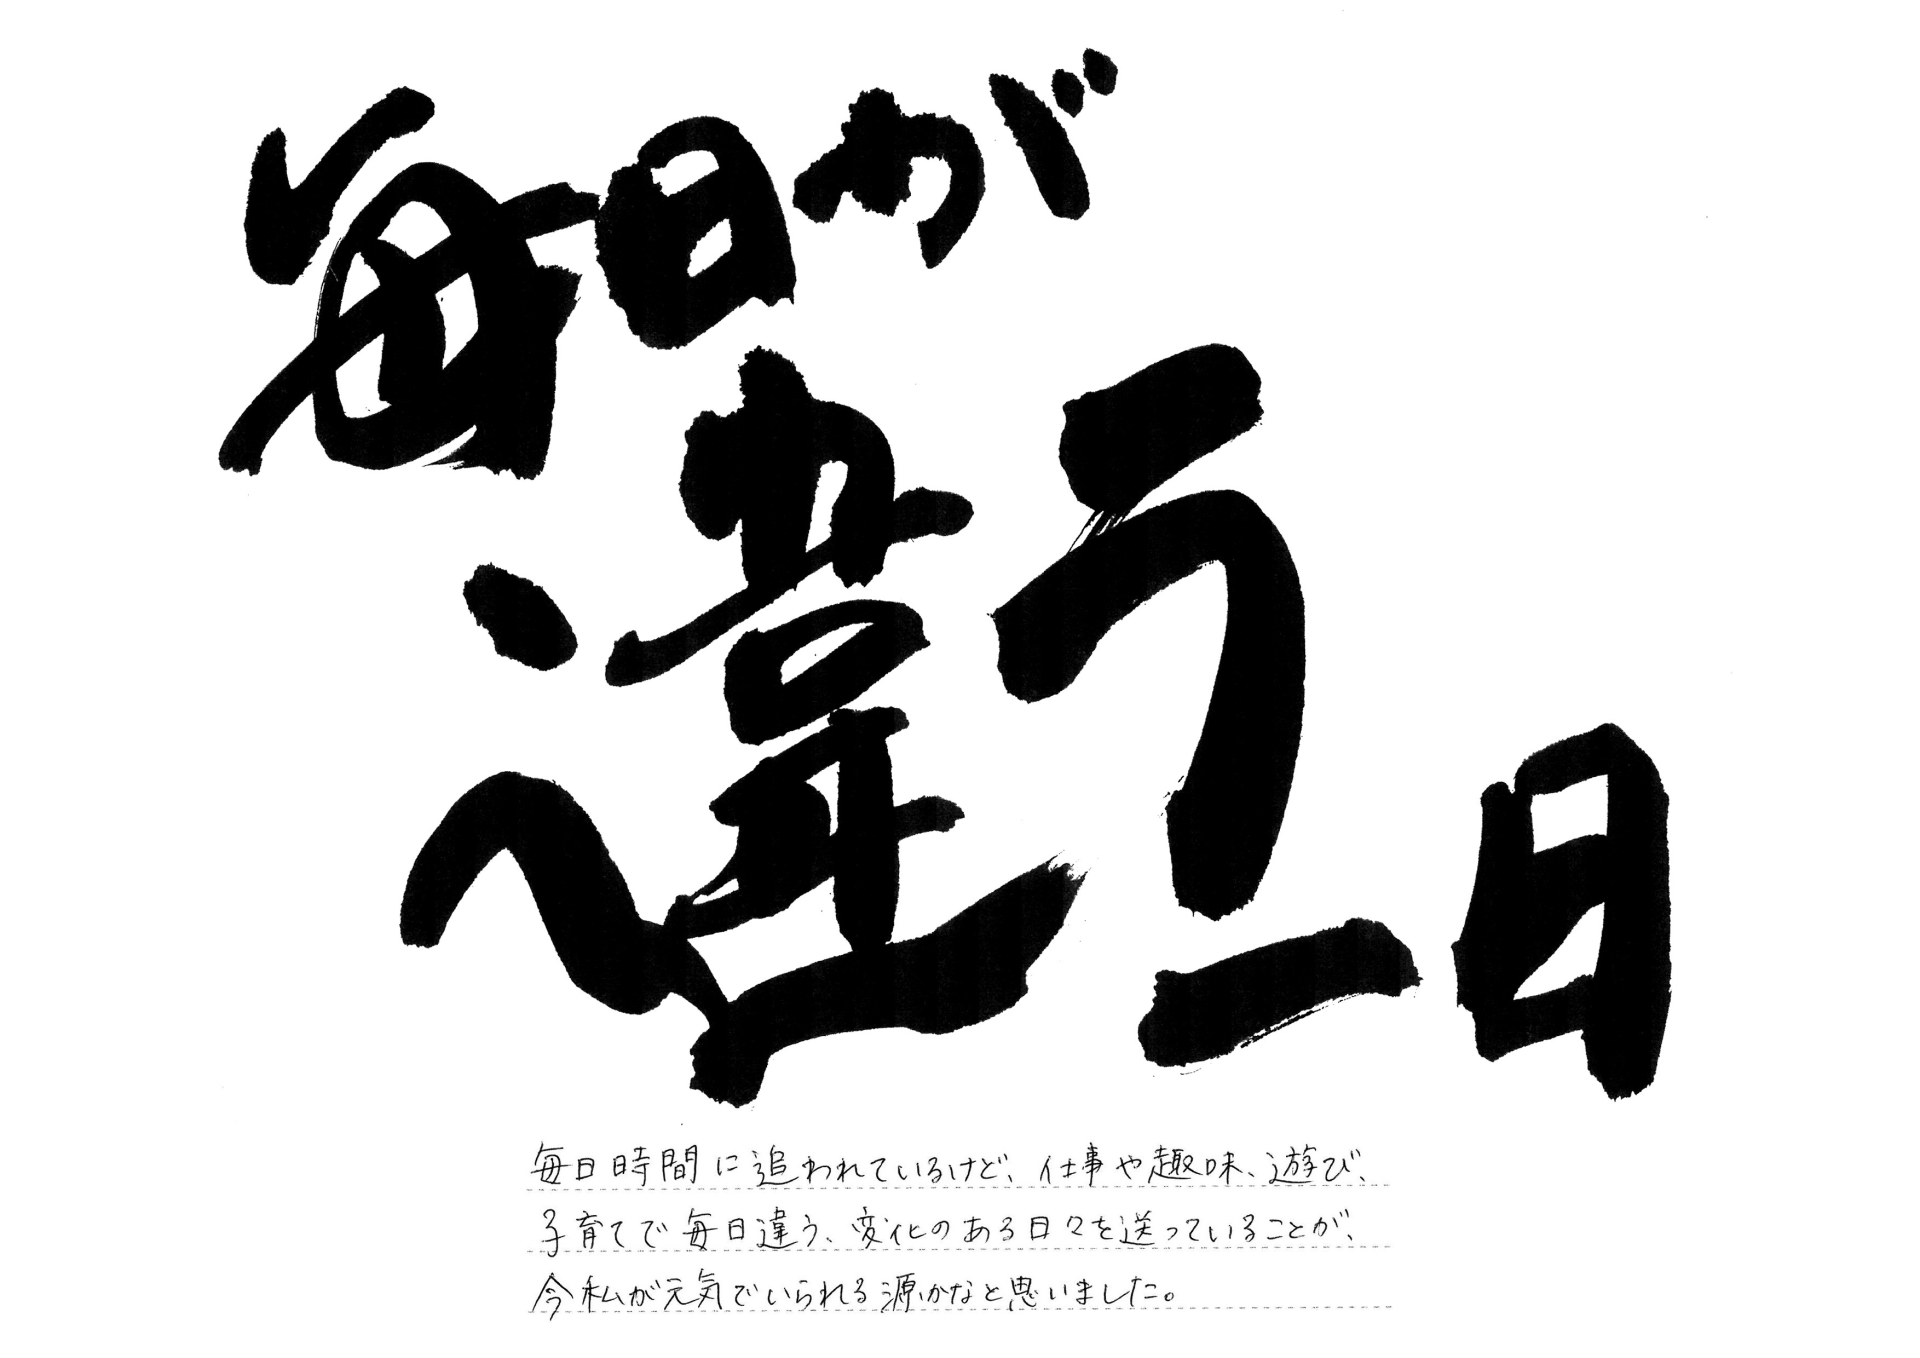 毎日が
違う
一日
毎日時間に追われているけど、仕事や趣味、遊び、
子育てで毎日違う、変化のある日々を送っていることが、
今私が元気でいられる源かなと思いました。